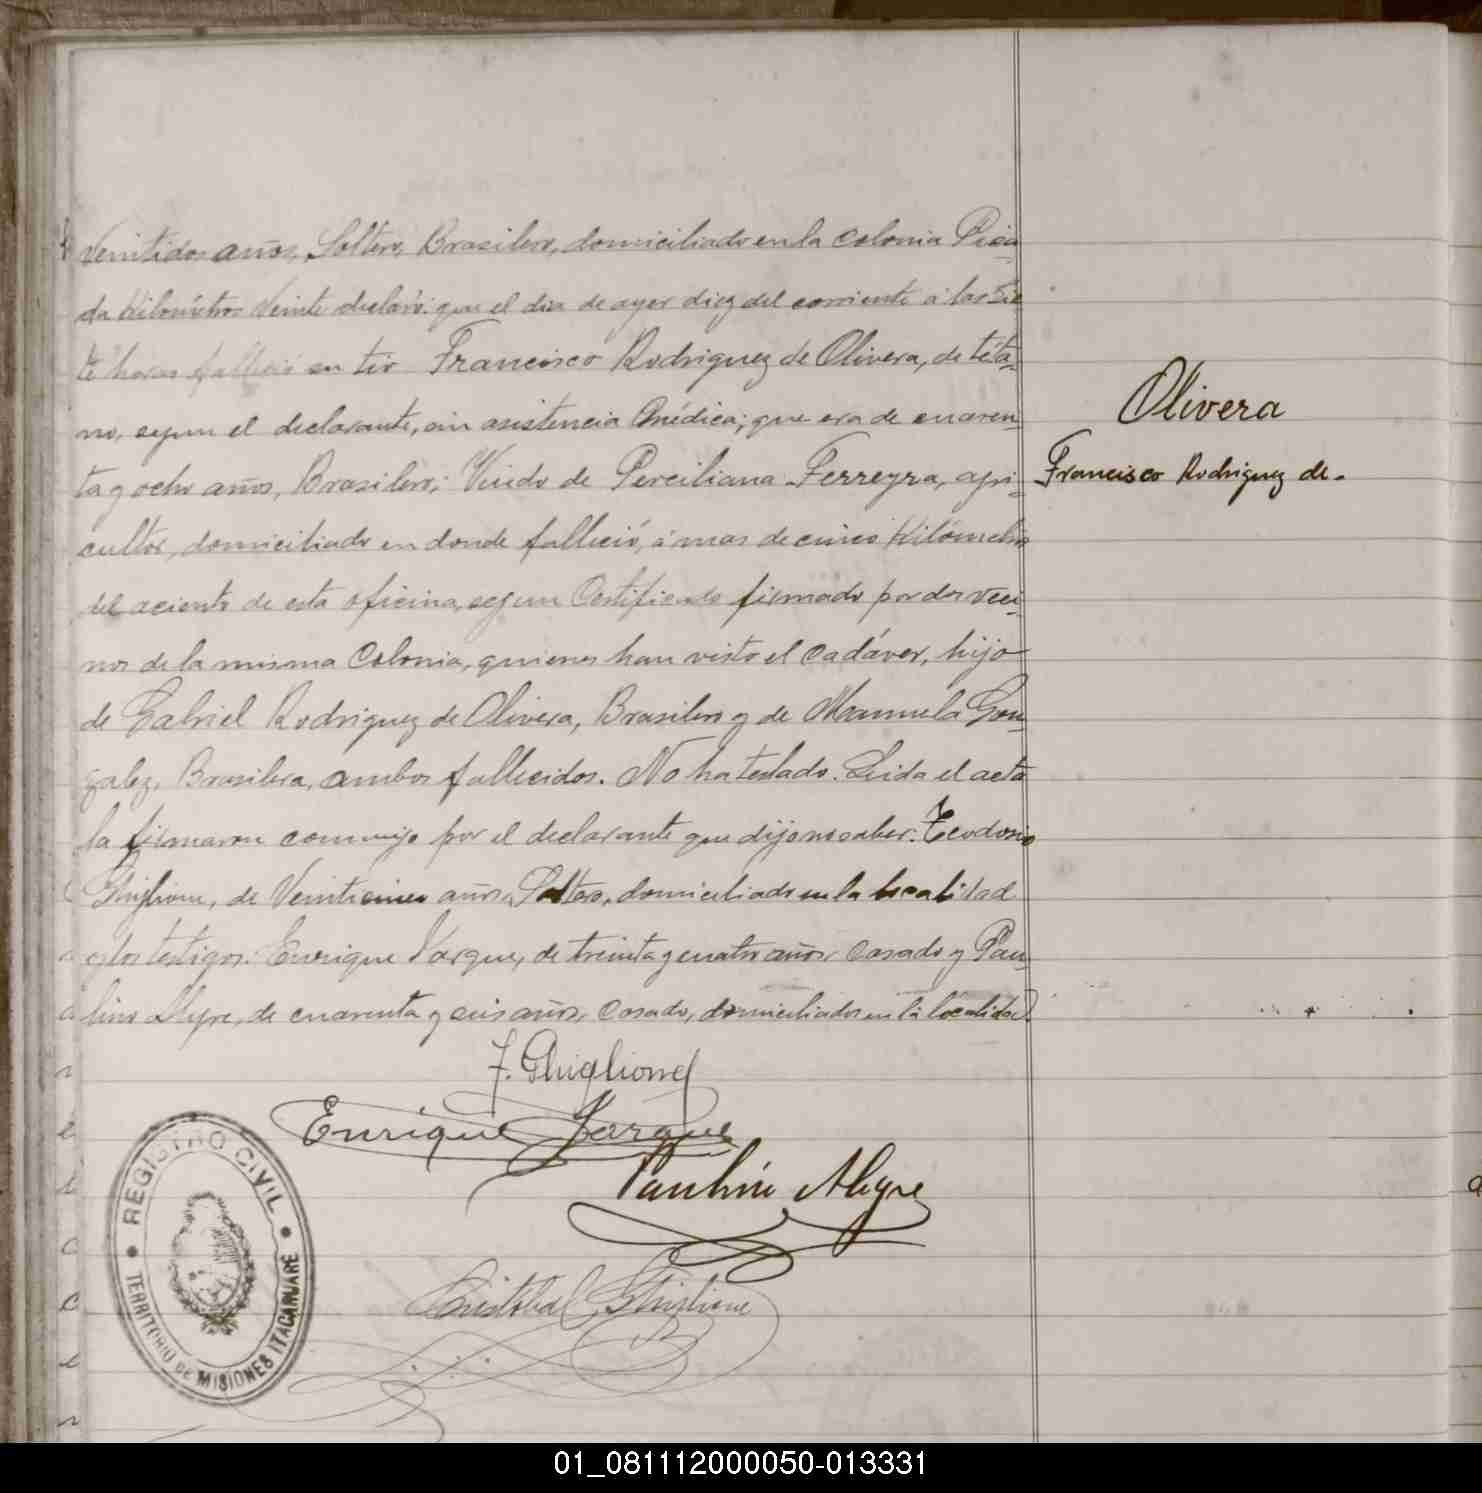 Veintidos años, Soltero, Brasilero, domiciliado en la colonia Pica-
da Kilómetro Veinte declaró: que el dia de ayer diez del corriente á las Sie
te horas falleció su tio Francisco Rodriguez de Olivera, de téta-
no, segun el declarante, sin asistencia Médica; que era de cuaren-
ta y ocho años, Brasilero; Viudo de Perciliana Ferreyra, agri-
cultor, domiciliado en donde falleció, á mas de cinco Kilómetros
del aciento de esta oficina, segun Certificado firmado por dos veci-
nos de la misma Colonia, quienes han visto el cadáver, hijo
de Gabriel Rodriguez de Olivera, Brasilero y de Manuela Gon-
zalez, Brasilera, ambos fallecidos. No ha testado. Leida el acta
la firmaron conmigo por el declarante que dijo no saber: Teodosio
Ghiglione, de Veinticinco años, Soltero, domiciliado en la localidad
y los testigos: Enrique Vargue, de treinta y cuatro años, Casado y Pau-
lino Alegre, de cuarenta y seis años, Casado, domiciliados en la localidad.
Olivera
Francisco Rodriguez de.
T. Ghiglione
Enrique Vargue
Paulino Alegre
Cristobal Ghiglione
REGISTRO CIVIL
TERRITORIO DE MISIONES ITACARUARE
01_081112000050-013331